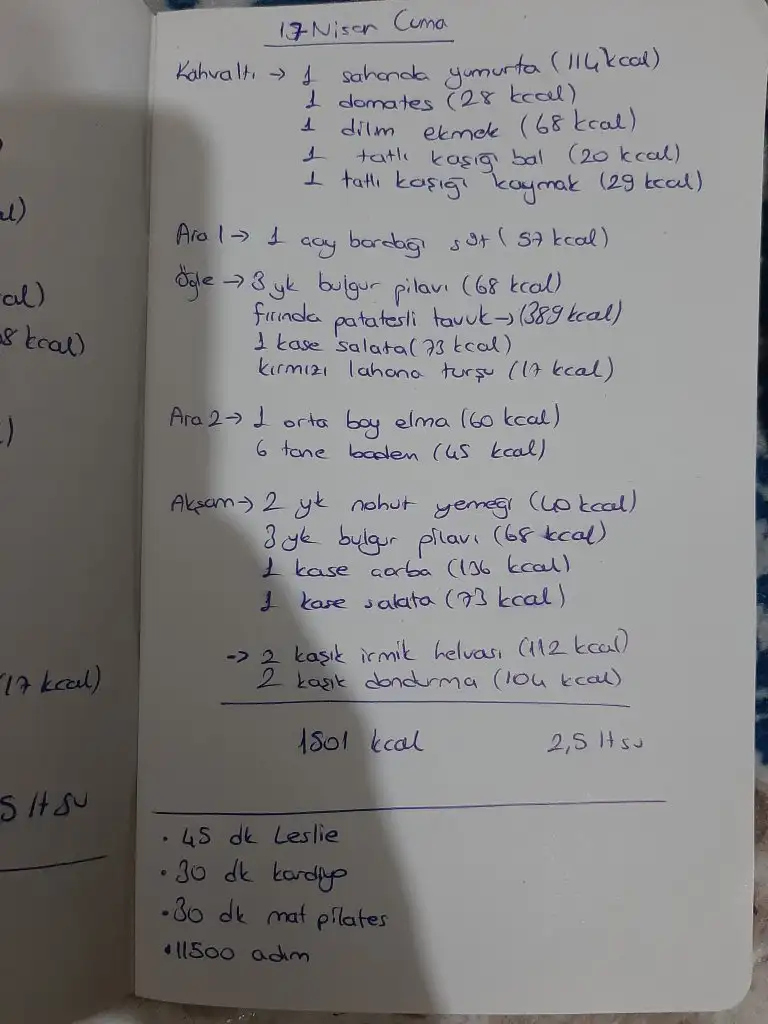 17 Nisan Cuma
Kahvaltı → 1 sahanda yumurta (114 kcal)
1 domates (28 kcal)
1 dilim ekmek (68 kcal)
1 tatlı kaşığı bal (20 kcal)
1 tatlı kaşığı kaymak (29 kcal)
Ara 1 → 1 çay bardağı süt (57 kcal)
Öğle → 3 yk bulgur pilavı (68 kcal)
fırında patatesli tavuk → (389 kcal)
1 kase salata (73 kcal)
kırmızı lahana turşu (17 kcal)
Ara 2 → 1 orta boy elma (60 kcal)
6 tane badem (45 kcal)
Akşam → 2 yk nohut yemeği (40 kcal)
3 yk bulgur pilavı (68 kcal)
1 kase çorba (136 kcal)
1 kase salata (73 kcal)
→ 2 kaşık irmik helvası (112 kcal)
2 kaşık dondurma (104 kcal)
1501 kcal 2,5 lt su
• 45 dk Leslie
• 30 dk kardiyo
• 30 dk mat pilates
• 11500 adım
al)
cal)
8 kcal)
)
(17 kcal)
5 lt su